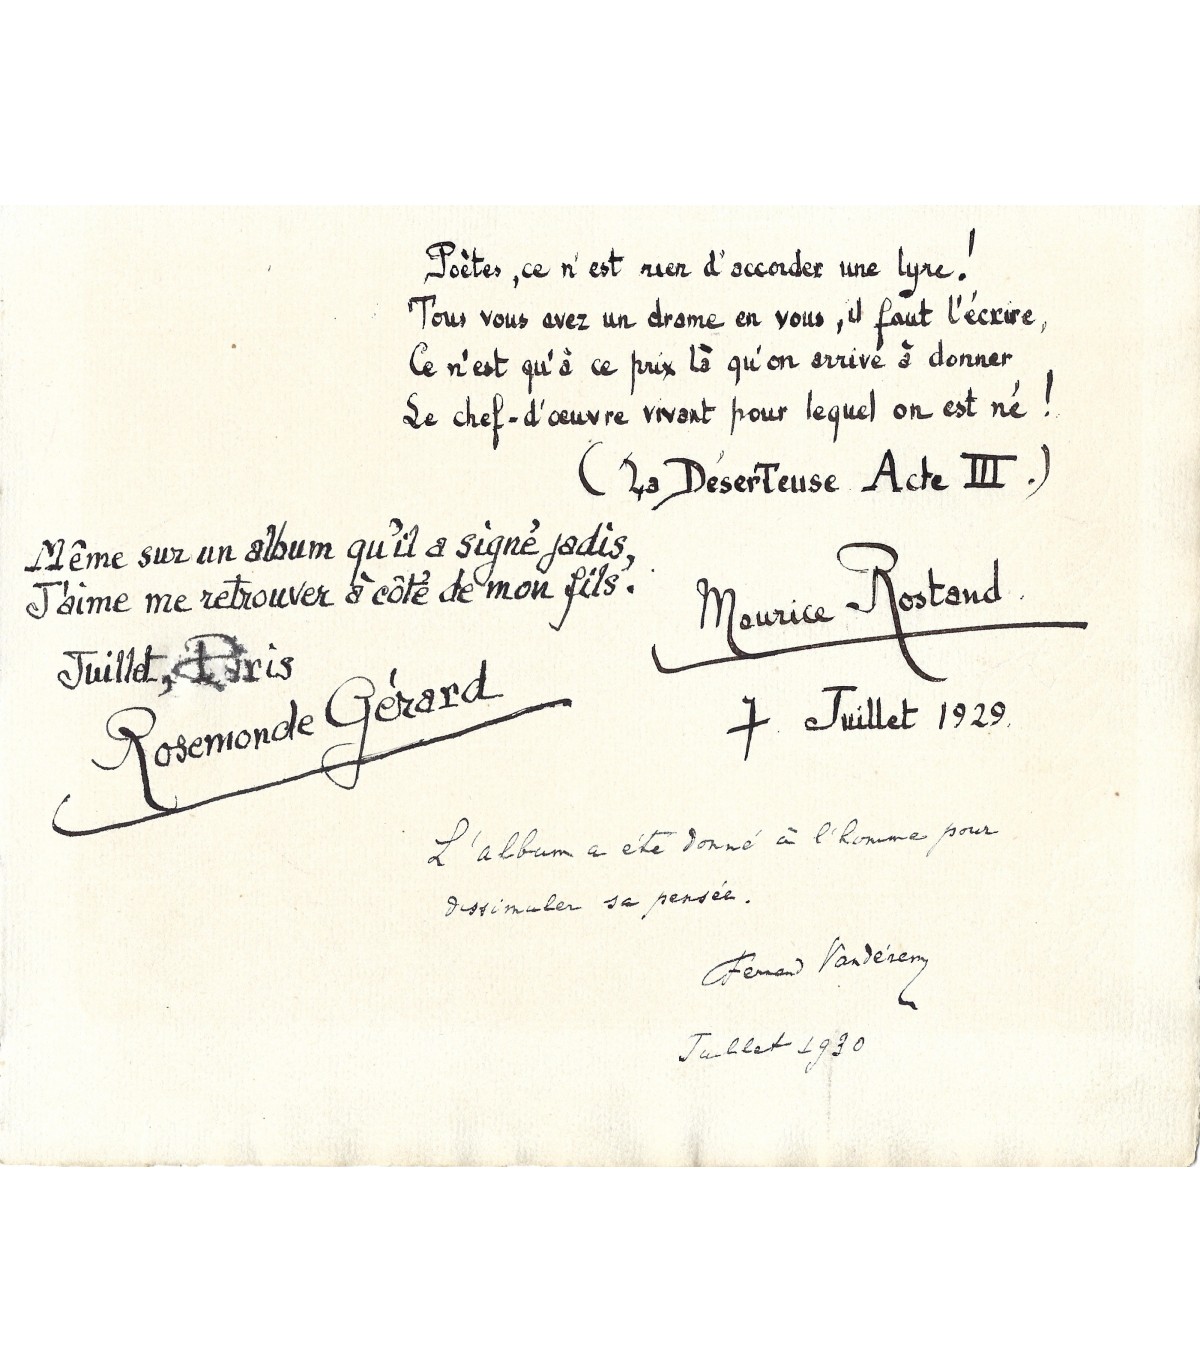 Poètes, ce n'est rien d'accorder une lyre!
Tous vous avez un drame en vous, il faut l'écrire,
Ce n'est qu'à ce prix là qu'on arrive à donner
Le chef-d'œuvre vivant pour lequel on est né!
(La Déserteuse Acte III.)
Maurice Rostand.
7 Juillet 1929.
Même sur un album qu'il a signé jadis,
J'aime me retrouver à côté de mon fils.
Juillet, Paris
Rosemonde Gérard
L'album a été donné à l'homme pour
dissimuler sa pensée.
Fernand Vandérem
Juillet 1930